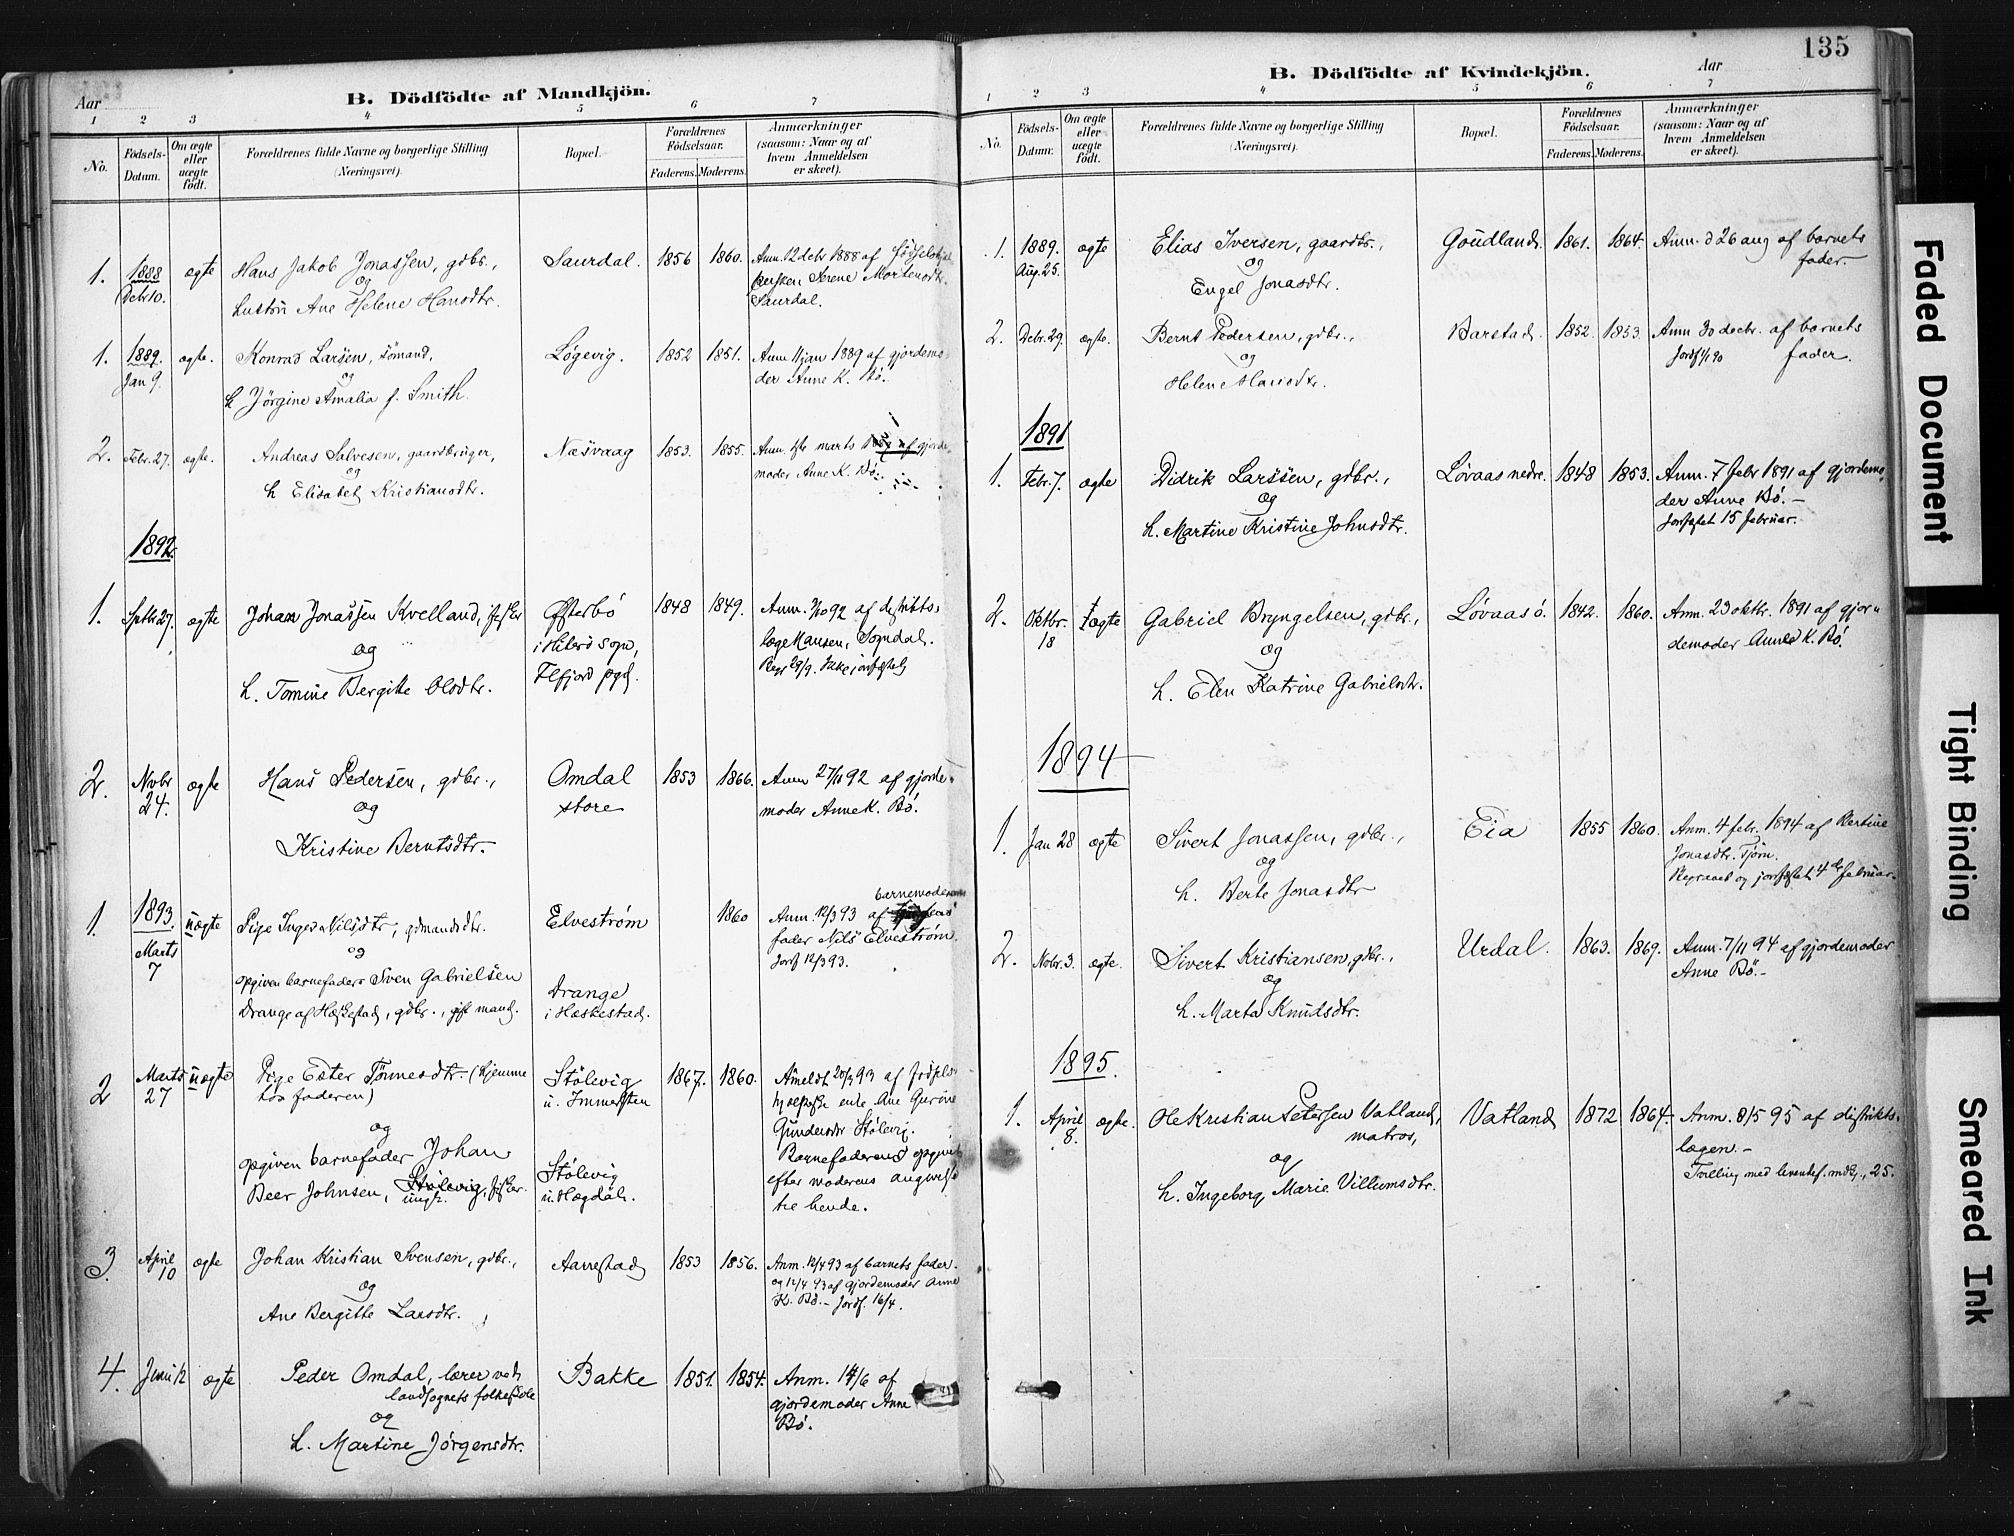 135
B. Dödfödte af Mandkjön.
Aar
1 2 3 4 5 6 7
No.
Födsels-
Datum.
Om ægte
eller
uægte
födt.
Forældrenes fulde Navne og borgerlige Stilling
(Næringsvei).
Bopæl.
Forældrenes
Födselsaar.
Faderens. Moderens.
Anmærkninger
(saasom: Naar og af
hvem Anmeldelsen
er skeet).
1. 1888 ægte Hans Jakob Jonassen, gdbr., Saurdal. 1856 1860. Anm. 12 decbr 1888 af
Decbr 10. og
hustru Ane Helene Hansdtr. Serene Mortensdtr.
Saurdal.
1. 1889. ægte. Konrad Larsen, sömand, Løgevig. 1852 1851. Anm. 11 jan 1889 af gjordemo
Jan 9. og
der Anne K. Bø.
h Jörgine Amalia f. Smith.
2. Febr. 27. ægte. Andreas Salvesen, gaardbruger, Næsvaag 1853. 1855. Anm. marts af gjorde
og
moder Anne K. Bø.
h Elisabet Kristiansdtr.
1892.
1. Septbr 27. ægte Johan Jonassen Kvelland, fisker Østerbö 1848 1849. Anm. 3/10 92 af distrikts-
og i Hiterø sogn, læge Hansen, Sogndal.
h. Tomine Bergitte Olsdtr. Flfjord pgd. 29/9. Ikke jordfæstet
2. Novbr ægte Hans Pedersen, gdbr., Omdal 1853 1866. Anm 27/11 92 af gjorde-
24. og store moder Anne K. Bø.
Kristine Berntsdtr.
1. 1893. uægte Pige Inger Nilsdtr, gdmandsdtr. Elvestrøm 1860 Anm. 12/3 93 af barnemoderens
Marts og fader Nils Elvestrøm.
7 opgiven barnefader Sven Gabrielsen Drange Jordf 12/3 93.
Drange af Heskestad, gdbr., gift mand. i Heskestad.
2 Marts uægte Pige Ester Tønnesdtr. (hjemme Stölevig 1867. 1860. Anmeldt 20/3 93 af fødsels-
27 hos faderen) u. Immerstein hjælpske enke Ane Gurine
og Gundersdtr Stölevig.
opgiven barnefader Johan Stölevig Barnefaderens opgivet
Beer Johnsen, Stölevig, fisker. u. Hægdal. efter moderens angivelse
ungk. til hende.
3. April ægte Johan Kristian Svensen, gdbr., Aarrestad 1853 1856. Anm. 12/4 93 af barnets fader.
10 og og 12/4 93 af gjordemoder Anne
Ane Bergitte Larsdtr. K. Bø. – Jordf. 16/4.
4. Juni 12 ægte Peder Omdal, lærer ved Bakke 1851. 1854. Anm. 14/6 af
landsognets folkeskole gjordemoder Anne
og Bø.
h. Martine Jørgensdtr.
B. Dödfödte af Kvindekjön.
Aar
1 2 3 4 5 6 7
No.
Födsels-
Datum.
Om ægte
eller
uægte
födt.
Forældrenes fulde Navne og borgerlige Stilling
(Næringsvei).
Bopæl.
Forældrenes
Födselsaar.
Faderens. Moderens.
Anmærkninger
(saasom: Naar og af
hvem Anmeldelsen
er skeet).
1. 1889. ægte Elias Iversen, gaardbr., Goudland. 1861. 1864. Anm. d 26 aug af barnets
Aug. 25. og fader.
Engel Jonasdtr.
2. Decbr. 29. ægte. Bernt Pedersen, gdbr., Barstad. 1852. 1853. Anm 30 decbr. af barnets
og Jordf 1/1 90 fader.
Helene Hansdtr.
1891
1. Febr. 7. ægte Didrik Larssen, gdbr., Løvaas nedre. 1848 1853. Anm. 7 febr 1891 af gjordemo-
og der Anne Bø. –
h. Martine Kristine Johnsdtr. Jordfæstet 15 februar.
2. Oktbr. ægte Gabriel Bryngelsen, gdbr., Løvaas ø. 1842. 1860. Anm. 23 oktbr. 1891 af gjor-
18 og demoder Anne K. Bø.
h. Elen Katrine Gabrielsdtr.
1894
1. Jan 28 ægte Sivert Jonassen, gdbr., Eia 1855 1860. Anm. 4 febr. 1894 af Bertine
og Jonasdtr. Tjörn.
h. Berte Jonasdtr og jordfæstet 4de februar.
2. Novbr. 3. ægte. Sivert Kristiansen, gdbr., Urdal. 1863. 1869. Anm. 7/11 94 af gjordemoder
og Anne Bø. –
h. Marta Knudsdtr.
1895.
1. April ægte. Ole Kristian Petersen Vatland, Vatland 1872 1864. Anm. 8/5 95 af distrikts-
8. matros, lægen. –
og Tvilling med levendef. mdkj., 25.
h. Ingeborg Marie Villumsdtr.
Faded Document
Tight Binding
Smeared Ink